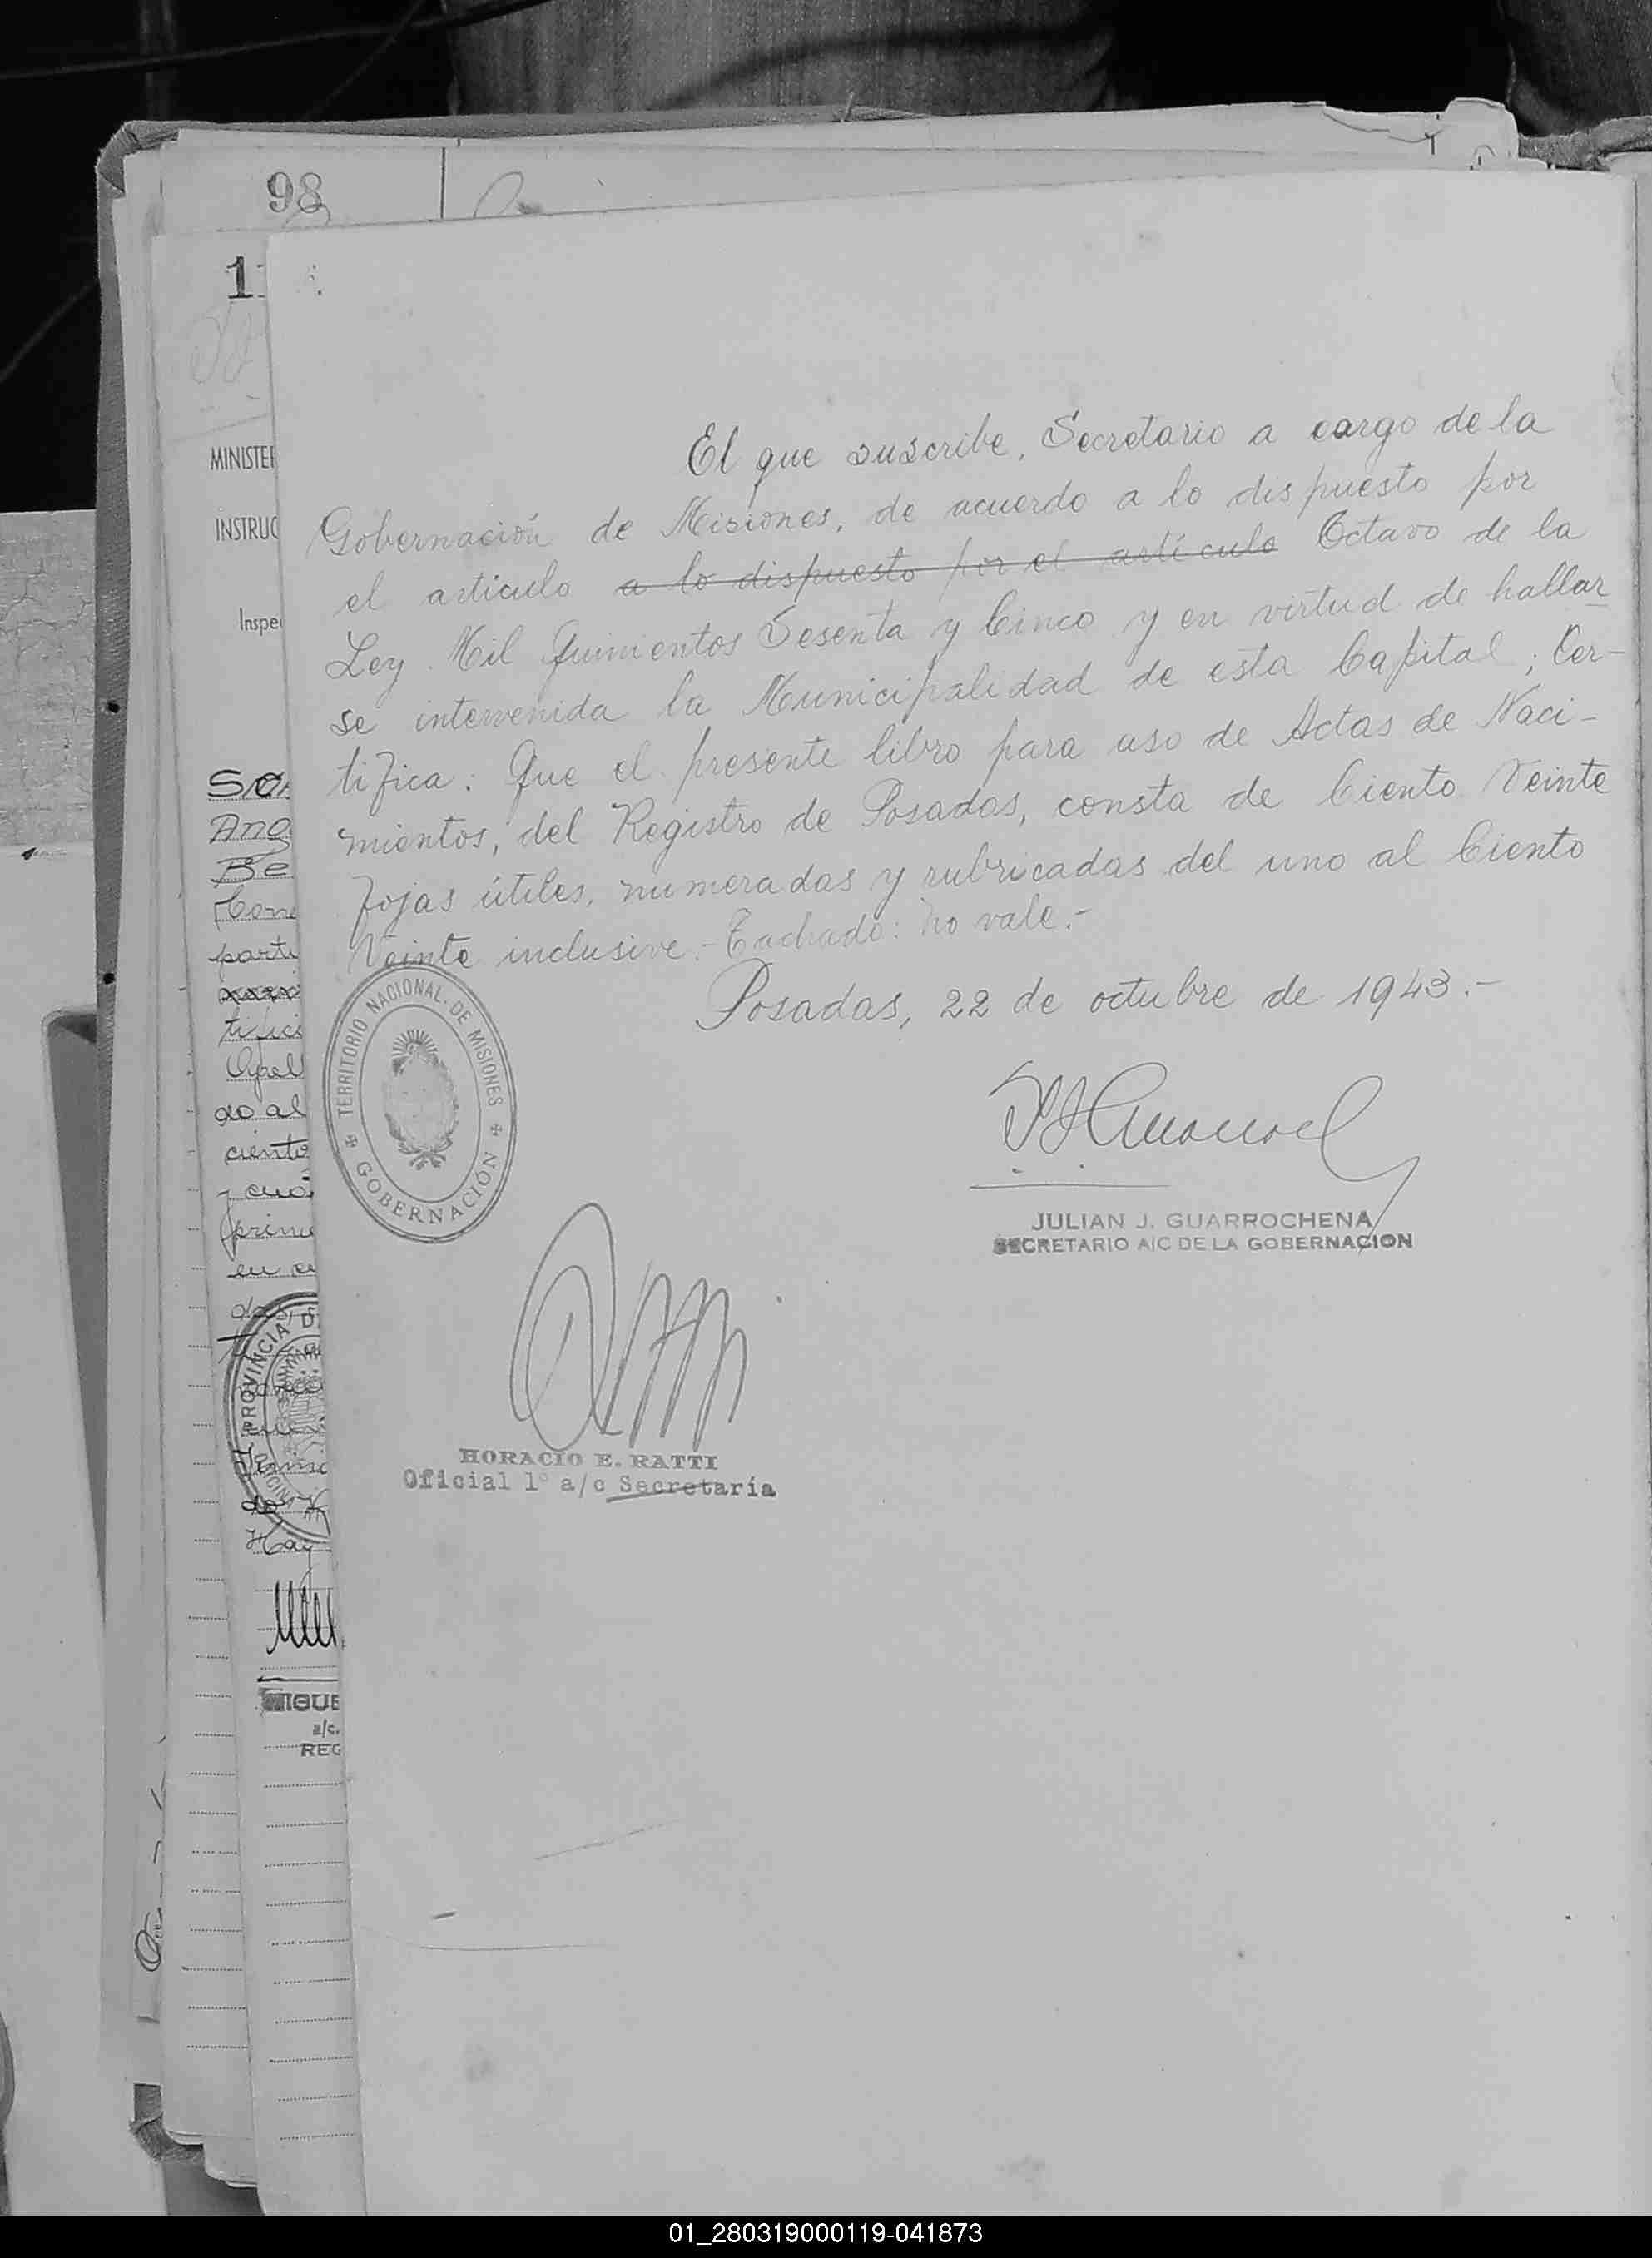 98
MINISTE
INSTRUC
Inspe
El que suscribe, Secretario a cargo de la
Gobernación de Misiones, de acuerdo a lo dispuesto por
el articulo a lo dispuesto por el artículo Octavo de la
Ley Mil Quinientos Sesenta y Cinco y en virtud de hallar
se intervenida la Municipalidad de esta Capital; Cer-
tifica: Que el presente libro para uso de Actas de Naci-
mientos, del Registro de Posadas, consta de Ciento Veinte
fojas útiles, numeradas y rubricadas del uno al Ciento
Veinte inclusive.- Tachado: no vale.-
Posadas, 22 de octubre de 1943.-
TERRITORIO NACIONAL DE MISIONES
GOBERNACIÓN
JULIAN J. GUARROCHENA
SECRETARIO A/C DE LA GOBERNACION
HORACIO E. RATTI
Oficial 1º a/c Secretaría
Ang
Be
parte
do al
ciento
prime
PROVINCIA D
Hay
IGUE
a/c.
REG
01_280319000119-041873